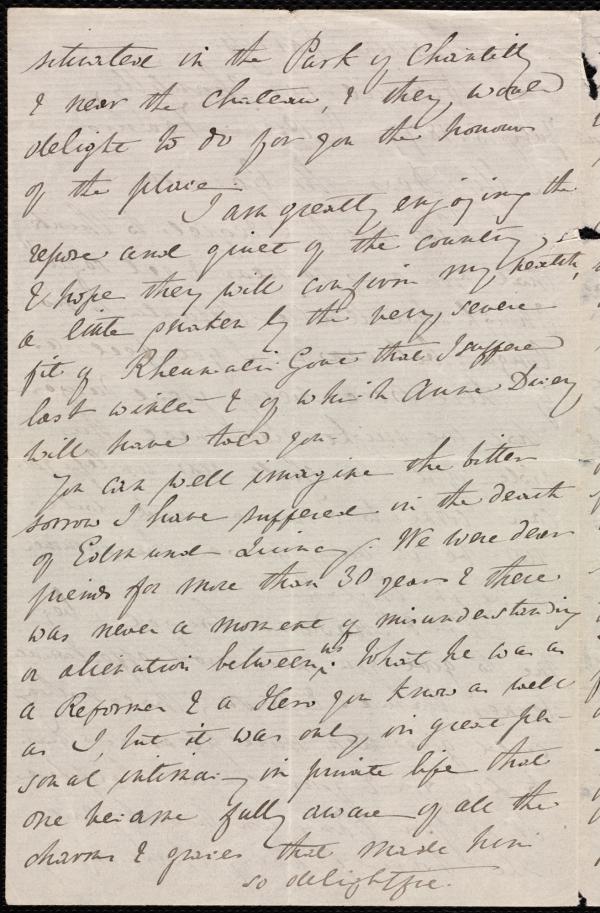 situated in the Park of Chantilly
& near the Chateau, & they would
delight to do for you the honours
of the place.
I am greatly enjoying the
repose and quiet of the country,
& hope they will confirm my health,
a little shaken by the very severe
fit of Rheumatic Gout that I suffered
last winter & of which Anne
will have told you.
You can well imagine the bitter
sorrow I have suffered in the death
of Edmund Quincy. We were dear
friends for more than 30 years & there
was never a moment of misunderstanding
or alienation between us. What he was as
a Reformer & a Hero you know as well
as I, but it was only in great per-
sonal intimacy in private life that
one became fully aware of all the
charms & graces that made him
so delightful.